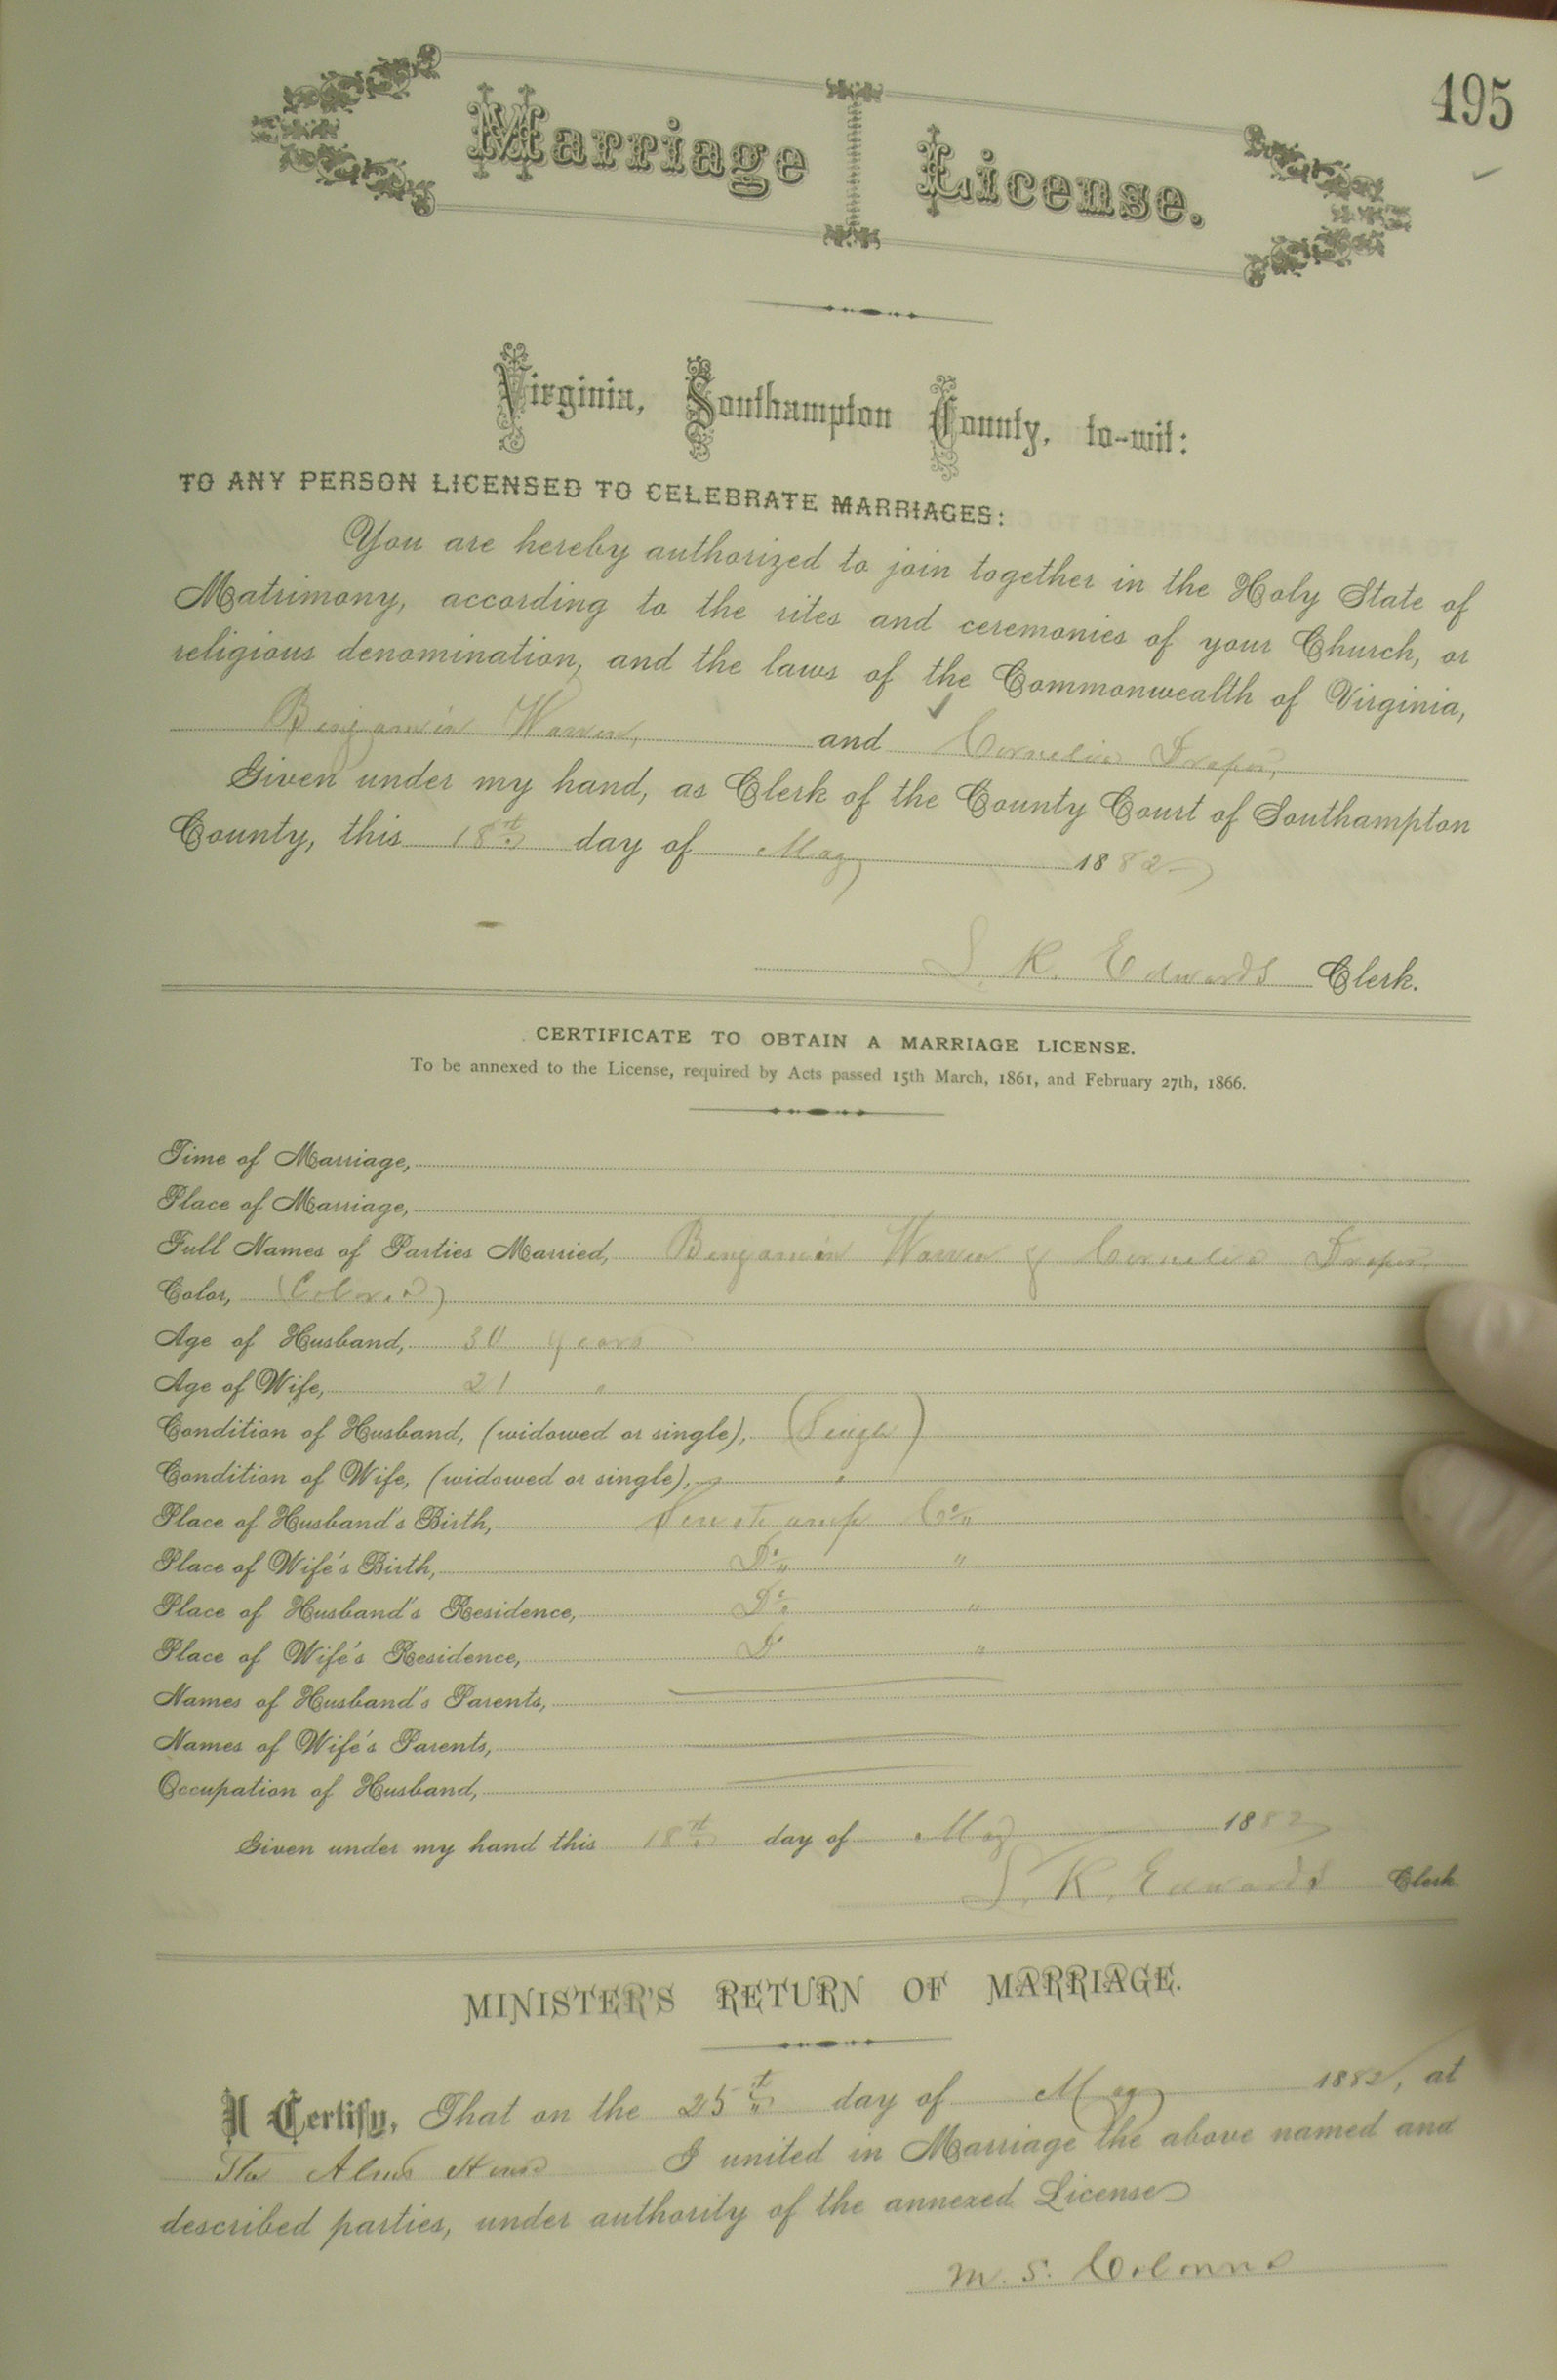 495
Marriage License.
Virginia, Southampton County, to-wit:
TO ANY PERSON LICENSED TO CELEBRATE MARRIAGES:
You are hereby authorized to join together in the Holy State of
Matrimony, according to the rites and ceremonies of your Church, or
religious denomination, and the laws of the Commonwealth of Virginia,
Benjamin Warren, and Cornelia Draper,
Given under my hand, as Clerk of the County Court of Southampton
County, this 18th day of May 1882
L. R. Edwards Clerk.
CERTIFICATE TO OBTAIN A MARRIAGE LICENSE.
To be annexed to the License, required by Acts passed 15th March, 1861, and February 27th, 1866.
Time of Marriage,
Place of Marriage,
Full Names of Parties Married, Benjamin Warren & Cornelia Draper
Color, (Colored)
Age of Husband, 30 years
Age of Wife, 21 "
Condition of Husband, (widowed or single), (Single)
Condition of Wife, (widowed or single), "
Place of Husband's Birth, Southamp Co "
Place of Wife's Birth, Do "
Place of Husband's Residence, Do "
Place of Wife's Residence, Do "
Names of Husband's Parents,
Names of Wife's Parents,
Occupation of Husband,
Given under my hand this 18th day of May 1882
L. R. Edwards Clerk.
MINISTER'S RETURN OF MARRIAGE.
I Certify, That on the 25th day of May 1882, at
The Alms House I united in Marriage the above named and
described parties, under authority of the annexed License
M. S. Colonna